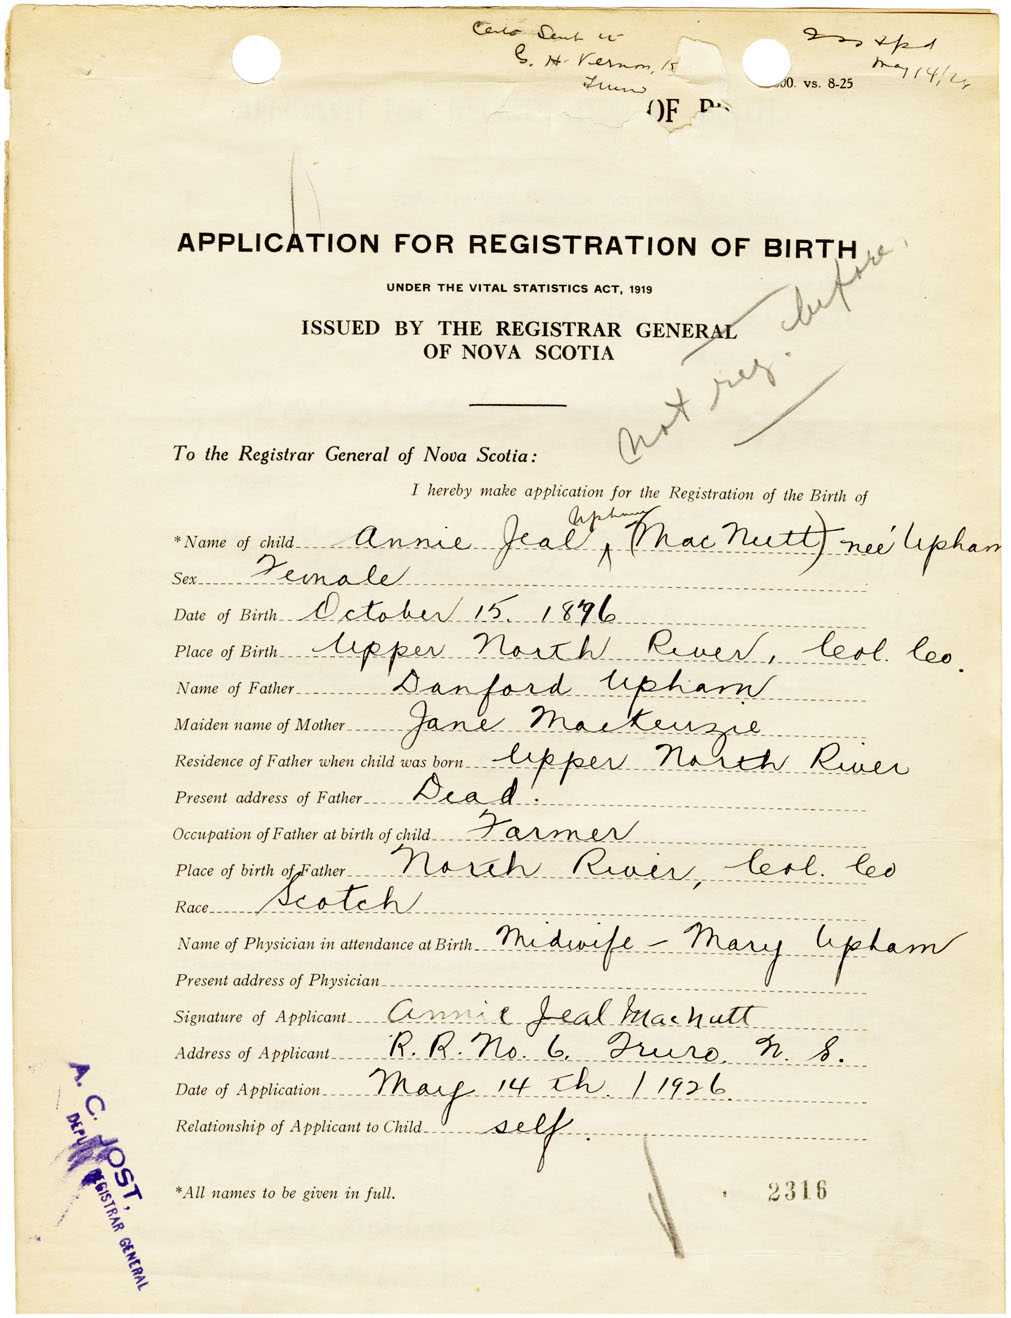 Sent to
G. H. Vernon,
Truro
pd
May 14/26
00. vs. 8-25
OF
APPLICATION FOR REGISTRATION OF BIRTH
UNDER THE VITAL STATISTICS ACT, 1919
ISSUED BY THE REGISTRAR GENERAL
OF NOVA SCOTIA
not reg. before.
To the Registrar General of Nova Scotia:
I hereby make application for the Registration of the Birth of
Upham
*Name of child Annie Jeal ^ (MacNutt) neé Upham
Sex Female
Date of Birth October 15. 1896
Place of Birth Upper North River, Col. Co.
Name of Father Danford Upham
Maiden name of Mother Jane MacKenzie
Residence of Father when child was born Upper North River
Present address of Father Dead.
Occupation of Father at birth of child Farmer
Place of birth of Father North River, Col. Co
Race Scotch
Name of Physician in attendance at Birth Midwife - Mary Upham
Present address of Physician
Signature of Applicant Annie Jeal MacNutt
Address of Applicant R. R. No. 6. Truro. N. S.
Date of Application May 14th. / 1926.
Relationship of Applicant to Child self.
*All names to be given in full.
2316
A. C. JOST,
DEPUTY REGISTRAR GENERAL